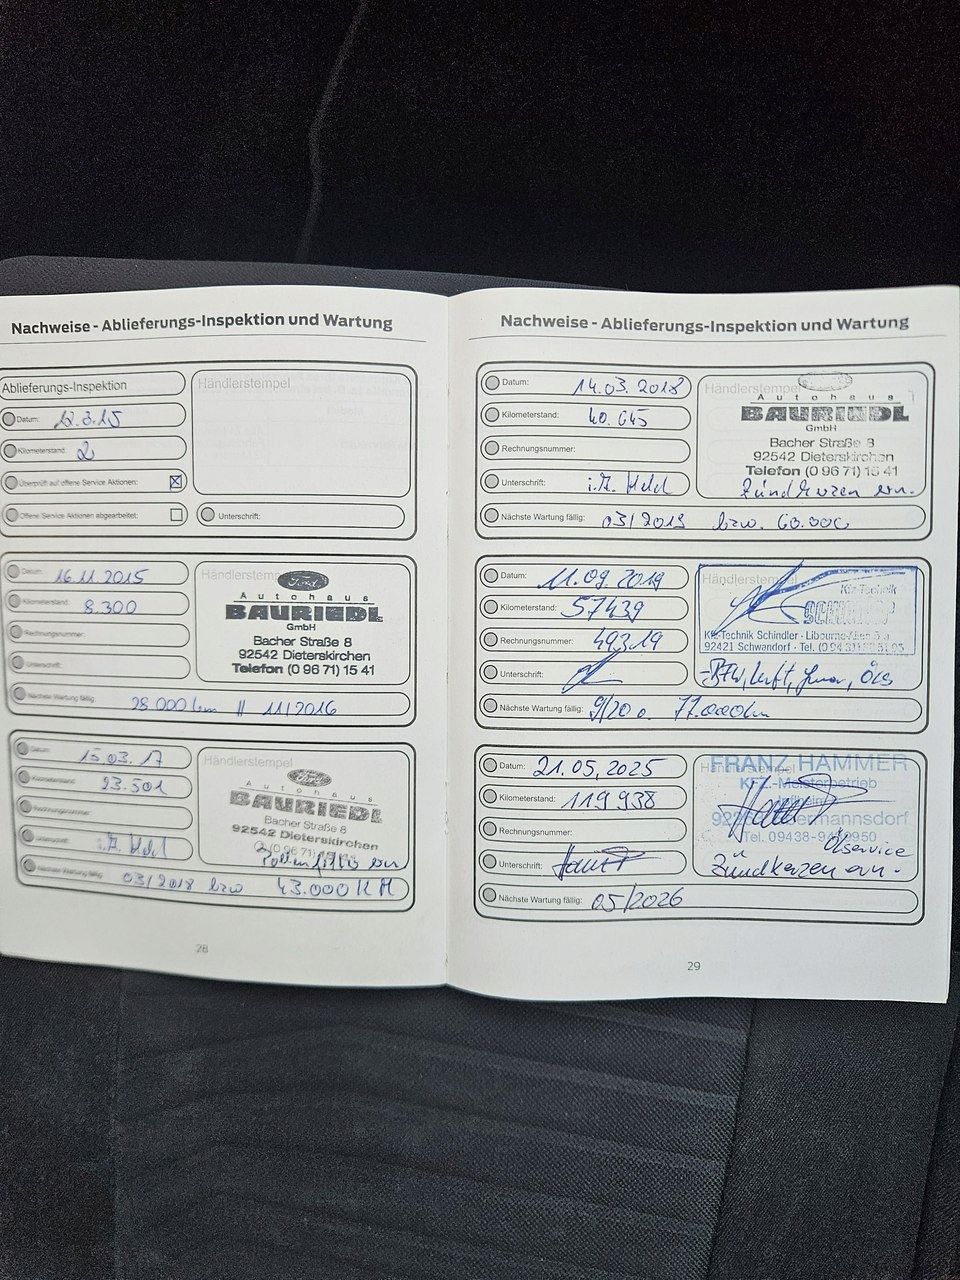 Nachweise - Ablieferungs-Inspektion und Wartung
Ablieferungs-Inspektion
Händlerstempel
Datum: 12.3.15
Kilometerstand: 2
Überprüft auf offene Service Aktionen: ☒
Offene Service Aktionen abgearbeitet: ☐
Unterschrift:
Datum: 16.11.2015
Händlerstempel
Ford
Autohaus
BAURIEDL
GmbH
Bacher Straße 8
92542 Dieterskirchen
Telefon (0 96 71) 15 41
Kilometerstand: 8.300
Rechnungsnummer:
Unterschrift:
Nächste Wartung fällig: 28.000 km // 11/2016
Datum: 15.03.17
Händlerstempel
Ford
Autohaus
BAURIEDL
GmbH
Bacher Straße 8
92542 Dieterskirchen
(0 96 71) 15 41
Pollenfilter ern
Kilometerstand: 23.501
Rechnungsnummer:
Unterschrift:
Nächste Wartung fällig: 03/2018 bzw 43.000 KM
28
Nachweise - Ablieferungs-Inspektion und Wartung
Datum: 14.03.2018
Händlerstempel
Autohaus
BAURIEDL
GmbH
Bacher Straße 8
92542 Dieterskirchen
Telefon (0 96 71) 15 41
Zündkerzen ern.
Kilometerstand: 40.645
Rechnungsnummer:
Unterschrift:
Nächste Wartung fällig: 03/2019 bzw. 60.000
Datum: 11.09.2019
Händlerstempel
Kfz-Technik
Kfz-Technik Schindler
92421 Schwandorf · Tel.
Kilometerstand: 57439
Rechnungsnummer: 49319
Unterschrift:
Nächste Wartung fällig: 9/20 o. 77.000km
Datum: 21.05.2025
FRANZ HAMMER
KFZ.-Meisterbetrieb
Tel. 09438-
Ölservice
Zündkerzen ern.
Kilometerstand: 119938
Rechnungsnummer:
Unterschrift:
Nächste Wartung fällig: 05/2026
29